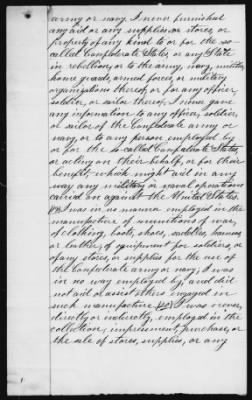 army or navy. I never furnished
any aid or any supplies or stores, or
property of any kind to or for the so-
called Confederate States, or any State
in rebellion, or to the army, navy, militia,
home guards, armed forces, or military
organizations thereof, or for any officer,
soldier, or sailor thereof, I never gave
any information to any officer, soldier,
or sailor of the Confederate army or
navy, or to any person employed by
or for the so-called Confederate States,
or acting on their behalf, or for their
benefit, which might aid in any
way any military or naval operations
carried on against the United States.
I was in no manner employed in the
manufacture of munitions of war,
of clothing, boots, shoes, saddles, harness
or leather, of equipment for soldiers, or
of any stores, or supplies for the use of
the Confederate army or navy; I was
in no way employed by, and did
not aid or assist others engaged in
such manufacture. I was never,
directly or indirectly, employed in the
collection, impressment, purchase, or
the sale of stores, supplies, or any